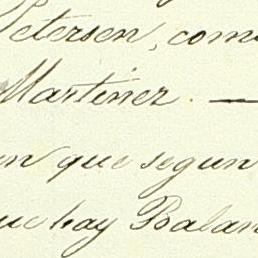 Petersen, com
Martinez. —
en que segun
que hay Balan